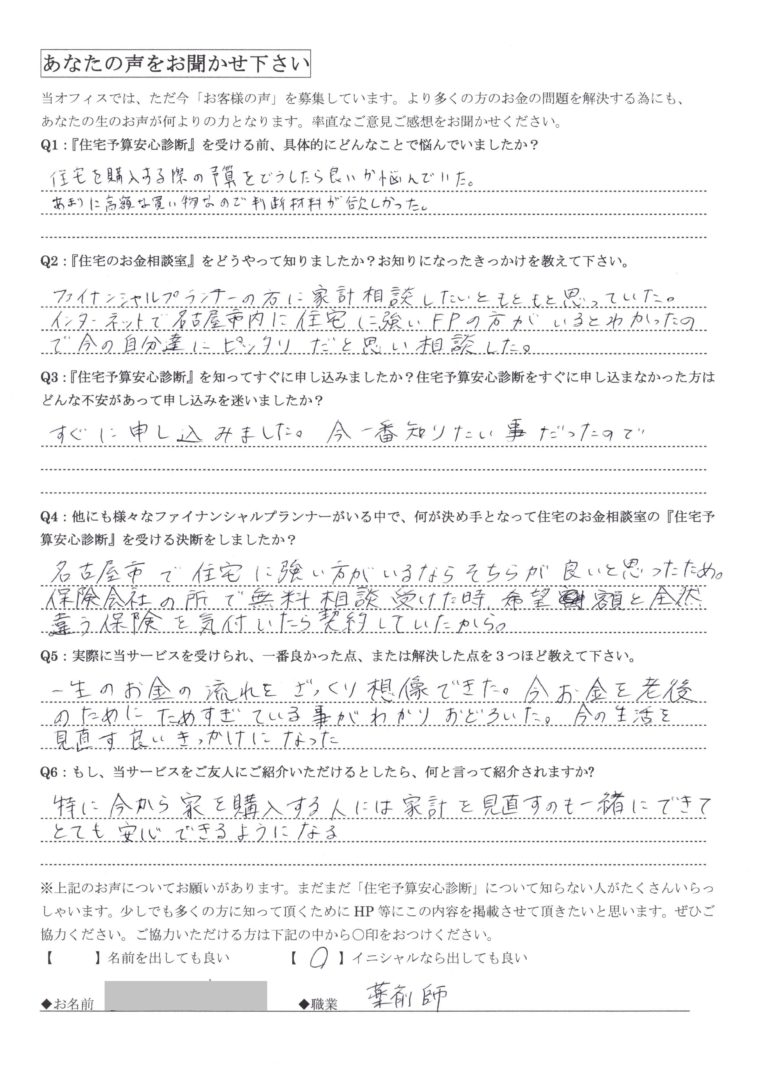 あなたの声をお聞かせ下さい
当オフィスでは、ただ今「お客様の声」を募集しています。より多くの方のお金の問題を解決する為にも、
あなたの生のお声が何よりの力となります。率直なご意見ご感想をお聞かせください。
Q1：『住宅予算安心診断』を受ける前、具体的にどんなことで悩んでいましたか？
住宅を購入する際の予算をどうしたら良いか悩んでいた。
あまりに高額な買い物なので判断材料が欲しかった。
Q2：『住宅のお金相談室』をどうやって知りましたか？お知りになったきっかけを教えて下さい。
ファイナンシャルプランナーの方に家計相談したいともともと思っていた。
インターネットで名古屋市内に住宅に強いFPの方がいるとわかったの
で今の自分達にピッタリだと思い相談した。
Q3：『住宅予算安心診断』を知ってすぐに申し込みましたか？住宅予算安心診断をすぐに申し込まなかった方は
どんな不安があって申し込みを迷いましたか？
すぐに申し込みました。今一番知りたい事だったので
Q4：他にも様々なファイナンシャルプランナーがいる中で、何が決め手となって住宅のお金相談室の『住宅予
算安心診断』を受ける決断をしましたか？
名古屋市で住宅に強い方がいるならそちらが良いと思ったため。
保険会社の所で無料相談受けた時、希望額と全然
違う保険を気付いたら契約していたから。
Q5：実際に当サービスを受けられ、一番良かった点、または解決した点を３つほど教えて下さい。
一生のお金の流れをざっくり想像できた。今お金を老後
のためにためすぎている事がわかりおどろいた。今の生活を
見直す良いきっかけになった
Q6：もし、当サービスをご友人にご紹介いただけるとしたら、何と言って紹介されますか?
特に今から家を購入する人には家計を見直すのも一緒にできて
とても安心できるようになる
※上記のお声についてお願いがあります。まだまだ「住宅予算安心診断」について知らない人がたくさんいらっ
しゃいます。少しでも多くの方に知って頂くためにHP等にこの内容を掲載させて頂きたいと思います。ぜひご
協力ください。ご協力いただける方は下記の中から〇印をおつけください。
【　　】名前を出しても良い　　　【 〇 】イニシャルなら出しても良い
◆お名前　　　◆職業　薬剤師